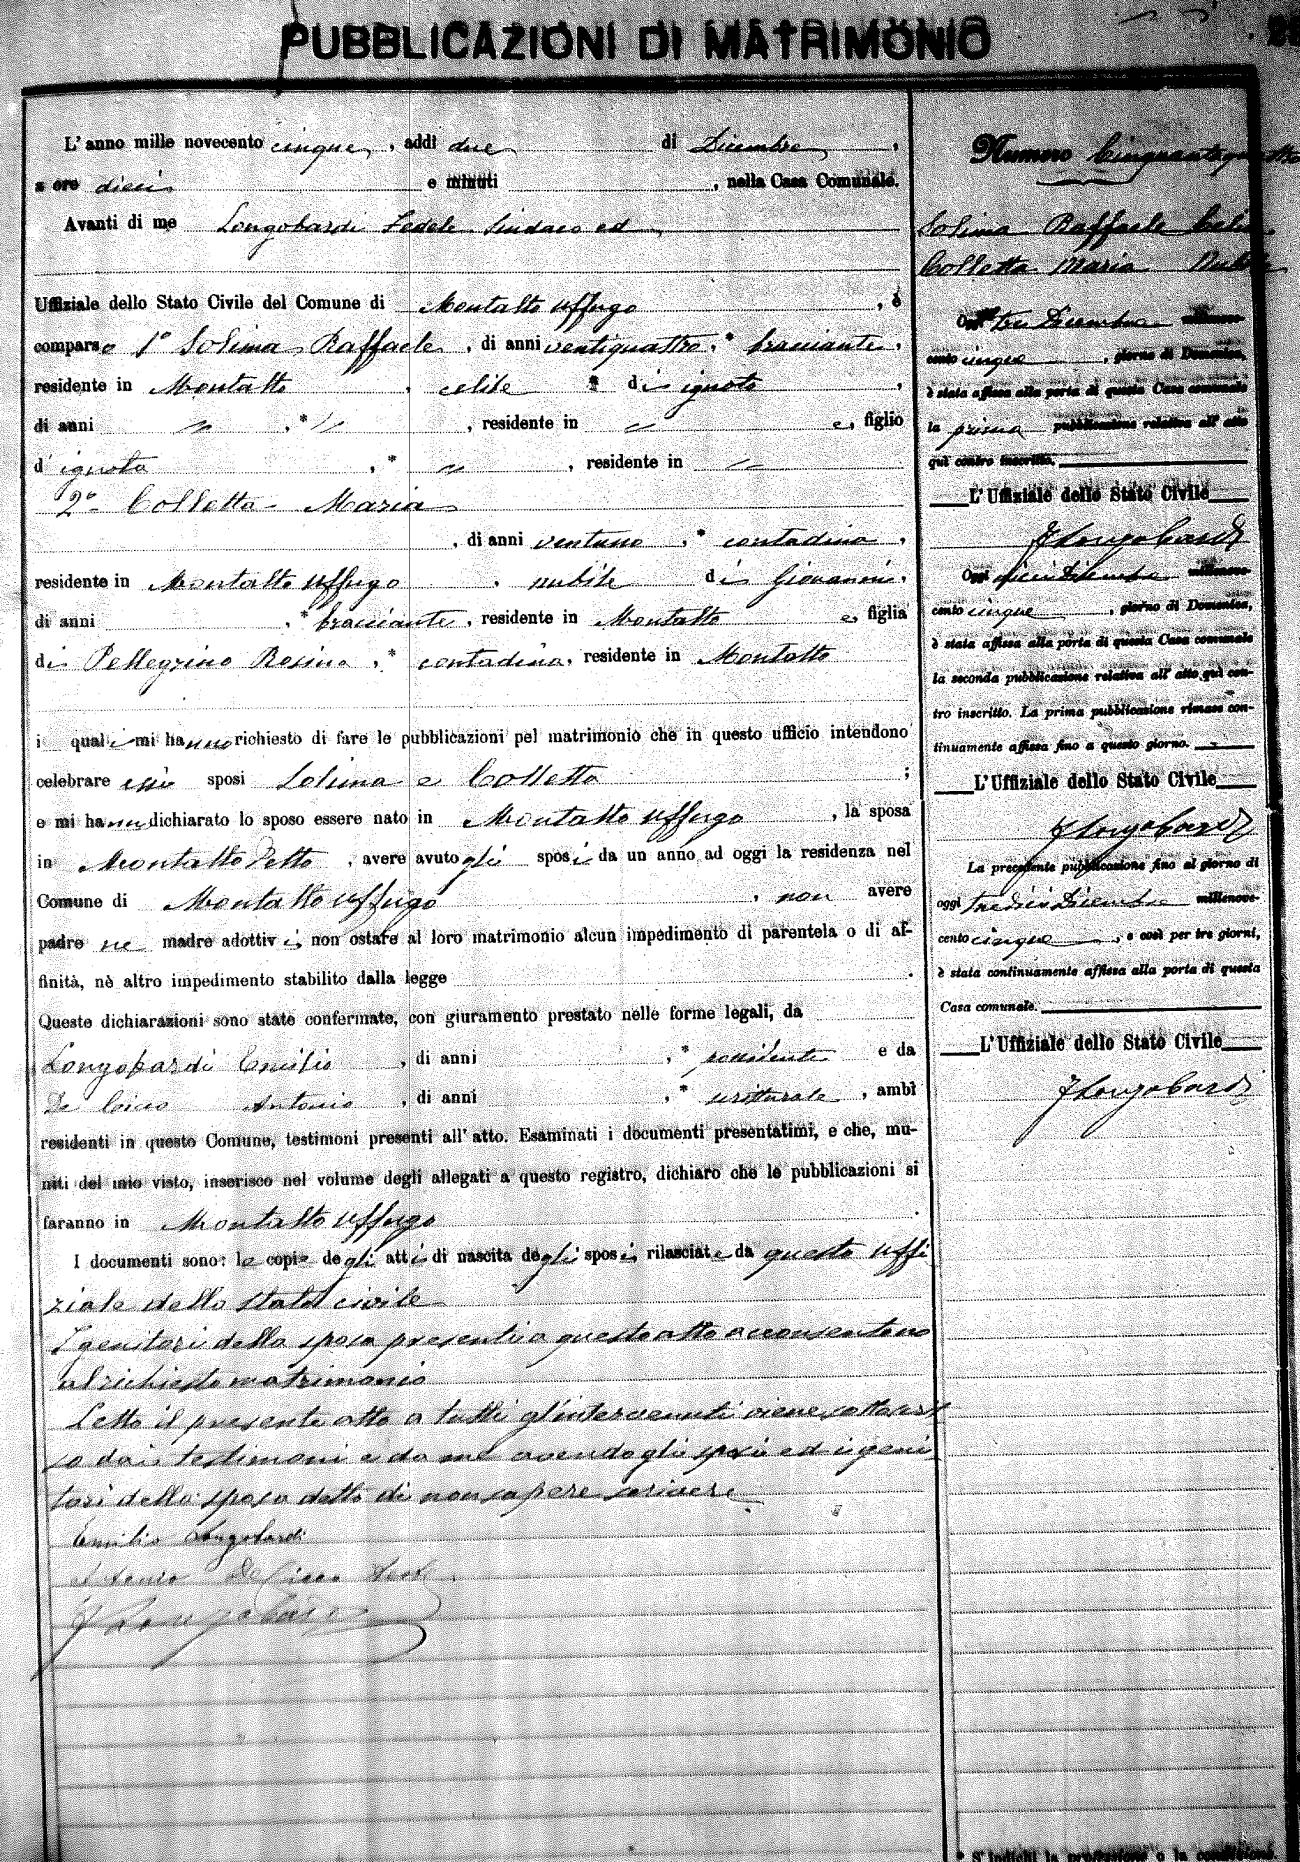 PUBBLICAZIONI DI MATRIMONIO
L'anno mille novecento cinque, addì due di Dicembre,
a ore dieci e minuti , nella Casa Comunale.
Avanti di me Longobardi Fedele Sindaco ed
Uffiziale dello Stato Civile del Comune di Montalto Uffugo , è
comparso 1° Solima Raffaele, di anni ventiquattro, * bracciante,
residente in Montalto , celibe * di ignoto ,
di anni " , * " , residente in " e, figlio
d' ignota , * " , residente in "
2° Colletta Maria
, di anni ventuno , * contadina ,
residente in Montalto Uffugo , nubile di Giovanni,
di anni , * bracciante, residente in Montalto e, figlia
di Pellegrino Rosina, * contadina, residente in Montalto
i quali mi hanno richiesto di fare le pubblicazioni pel matrimonio che in questo ufficio intendono
celebrare essi sposi Solima e Colletta ;
e mi hanno dichiarato lo sposo essere nato in Montalto Uffugo , la sposa
in Montalto detto , avere avuto gli sposi da un anno ad oggi la residenza nel
Comune di Montalto Uffugo , non avere
padre ne madre adottivi, non ostare al loro matrimonio alcun impedimento di parentela o di af-
finità, nè altro impedimento stabilito dalla legge .
Queste dichiarazioni sono state confermate, con giuramento prestato nelle forme legali, da
Longobardi Emilio , di anni , * possidente e da
De Cicco Antonio , di anni , * scritturale , ambi
residenti in questo Comune, testimoni presenti all'atto. Esaminati i documenti presentatimi, e che, mu-
niti del mio visto, inserisco nel volume degli allegati a questo registro, dichiaro che le pubblicazioni si
faranno in Montalto Uffugo .
I documenti sono: le copie degli atti di nascita degli sposi, rilasciate da questo Uffi
ziale dello stato civile
I genitori della sposa presenti a questo atto acconsentono
al richiesto matrimonio
Letto il presente atto a tutti gl'intervenuti viene sottoscrit
to dai testimoni e da me avendo gli sposi ed i geni
tori della sposa detto di non sapere scrivere
Emilio Longobardi
Antonio De Cicco Test
F Longobardi
Numero Cinquantaquattro
Solima Raffaele
Colletta Maria Nubile
Oggi tre Dicembre millenove-
cento cinque , giorno di Domenica,
è stata affissa alla porta di questa Casa comunale
la prima pubblicazione relativa all'atto
quì contro inscritto.
L'Uffiziale dello Stato Civile
F Longobardi
Oggi dieci Dicembre millenove-
cento cinque , giorno di Domenica,
è stata affissa alla porta di questa Casa comunale
la seconda pubblicazione relativa all'atto quì con-
tro inscritto. La prima pubblicazione rimase con-
tinuamente affissa fino a questo giorno.
L'Uffiziale dello Stato Civile
F Longobardi
La precedente pubblicazione fino al giorno di
oggi tredici Dicembre millenove-
cento cinque , e così per tre giorni,
è stata continuamente affissa alla porta di questa
Casa comunale.
L'Uffiziale dello Stato Civile
F Longobardi
* S'indichi la professione o la condizione.